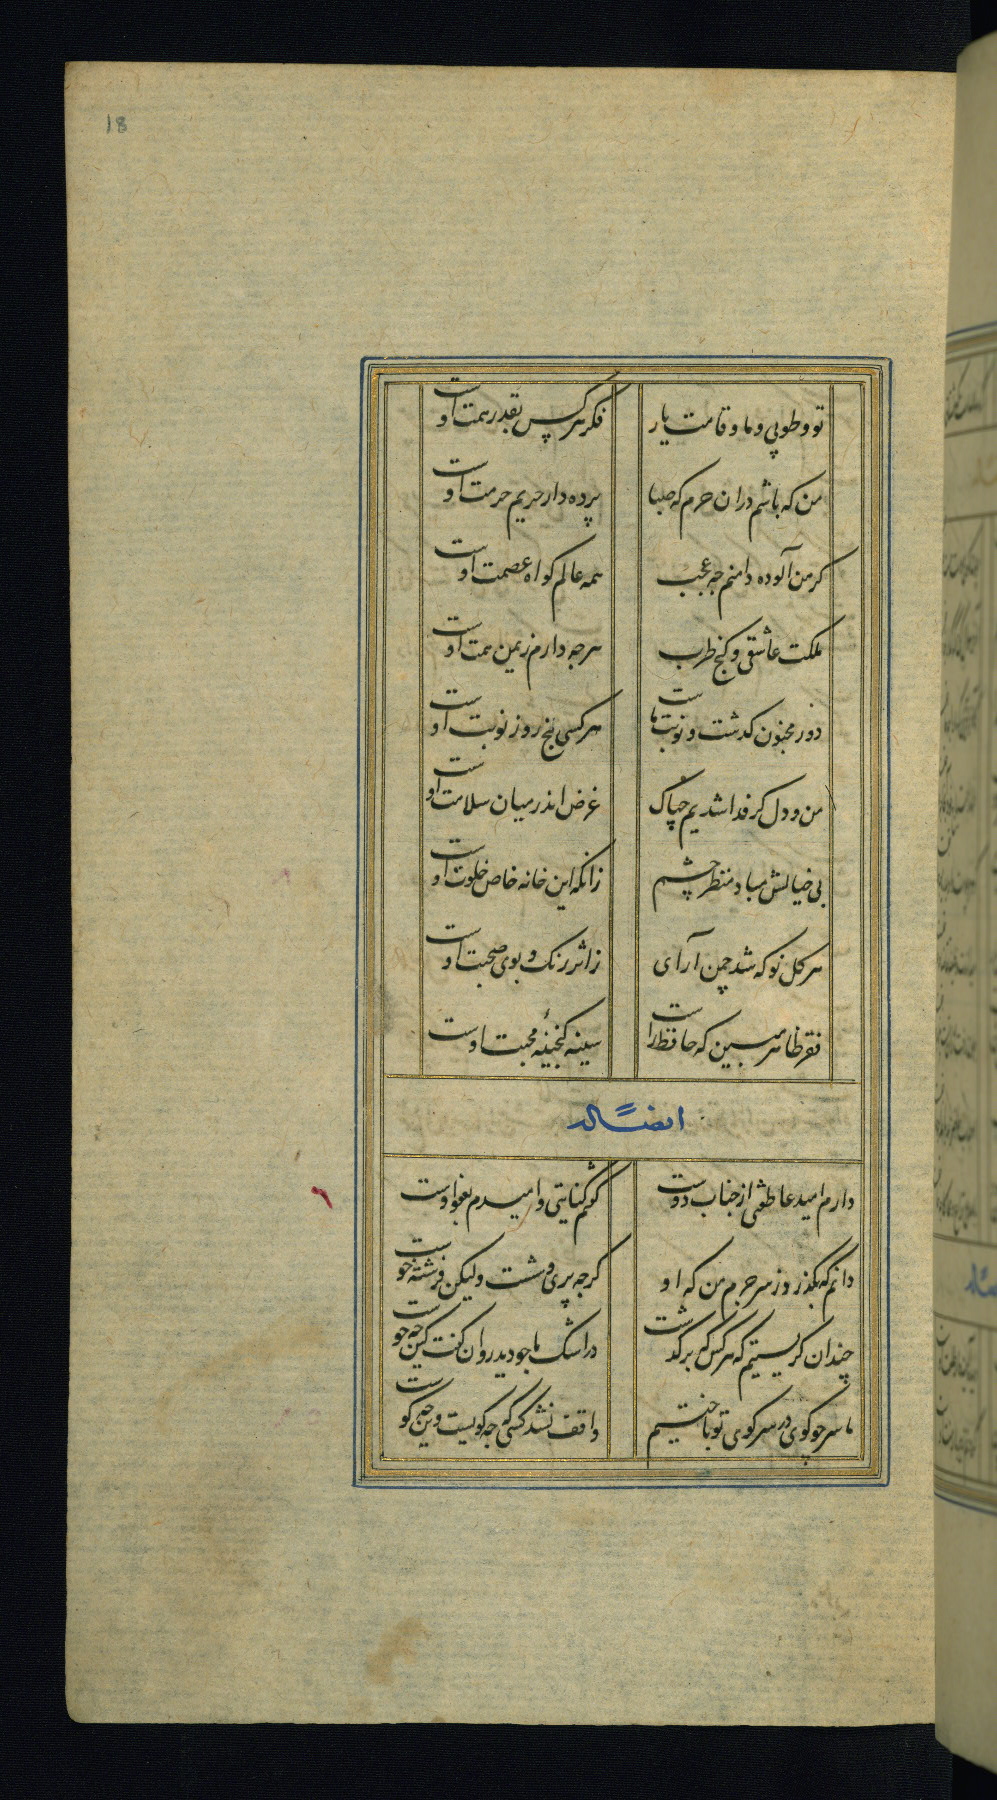 18
تو و طوبی و ما و قامت یار
فکر هر کس بقدر همت اوست
من که باشم دران حرم که صبا
پرده دار حریم حرمت اوست
کر من آلوده دامنم چه عجب
همه عالم کواه عصمت اوست
ملکت عاشقی و کنج طرب
هرچه دارم ز یمن همت اوست
دور مجنون کذشت و نوبت ماست
هر کسی پنج روز نوبت اوست
من و دل کر فدا شدیم چه باک
غرض اندر میان سلامت اوست
بی خیالش مباد منظر چشم
زانکه این خانه خاص خلوت اوست
هر کل نو که شد چمن آرای
ز اثر رنک و بوی صحبت اوست
فقر ظاهر مبین که حافظ راست
سینه کنجینهٔ محبت اوست
ایضاً له
دارم امید عاطفتی از جناب دوست
کردم جنایتی و امیدم بعفو اوست
دانم که بکذرد ز سر جرم من که او
کرچه پری وشست ولیکن فرشته خوست
چندان کریستیم که هر کس که برکذشت
در اشک ما چو دید روان کفت کین چه جوست
ما سر چو کوی در سر کوی تو باختیم
واقف نشد کسی که چه کویست وین چه کوست